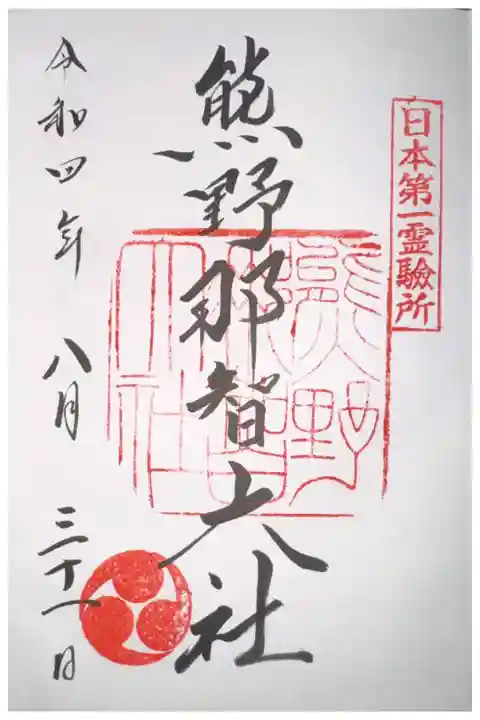 日本第一霊験所
熊野那智大社
熊野那智大社
令和四年八月三十一日